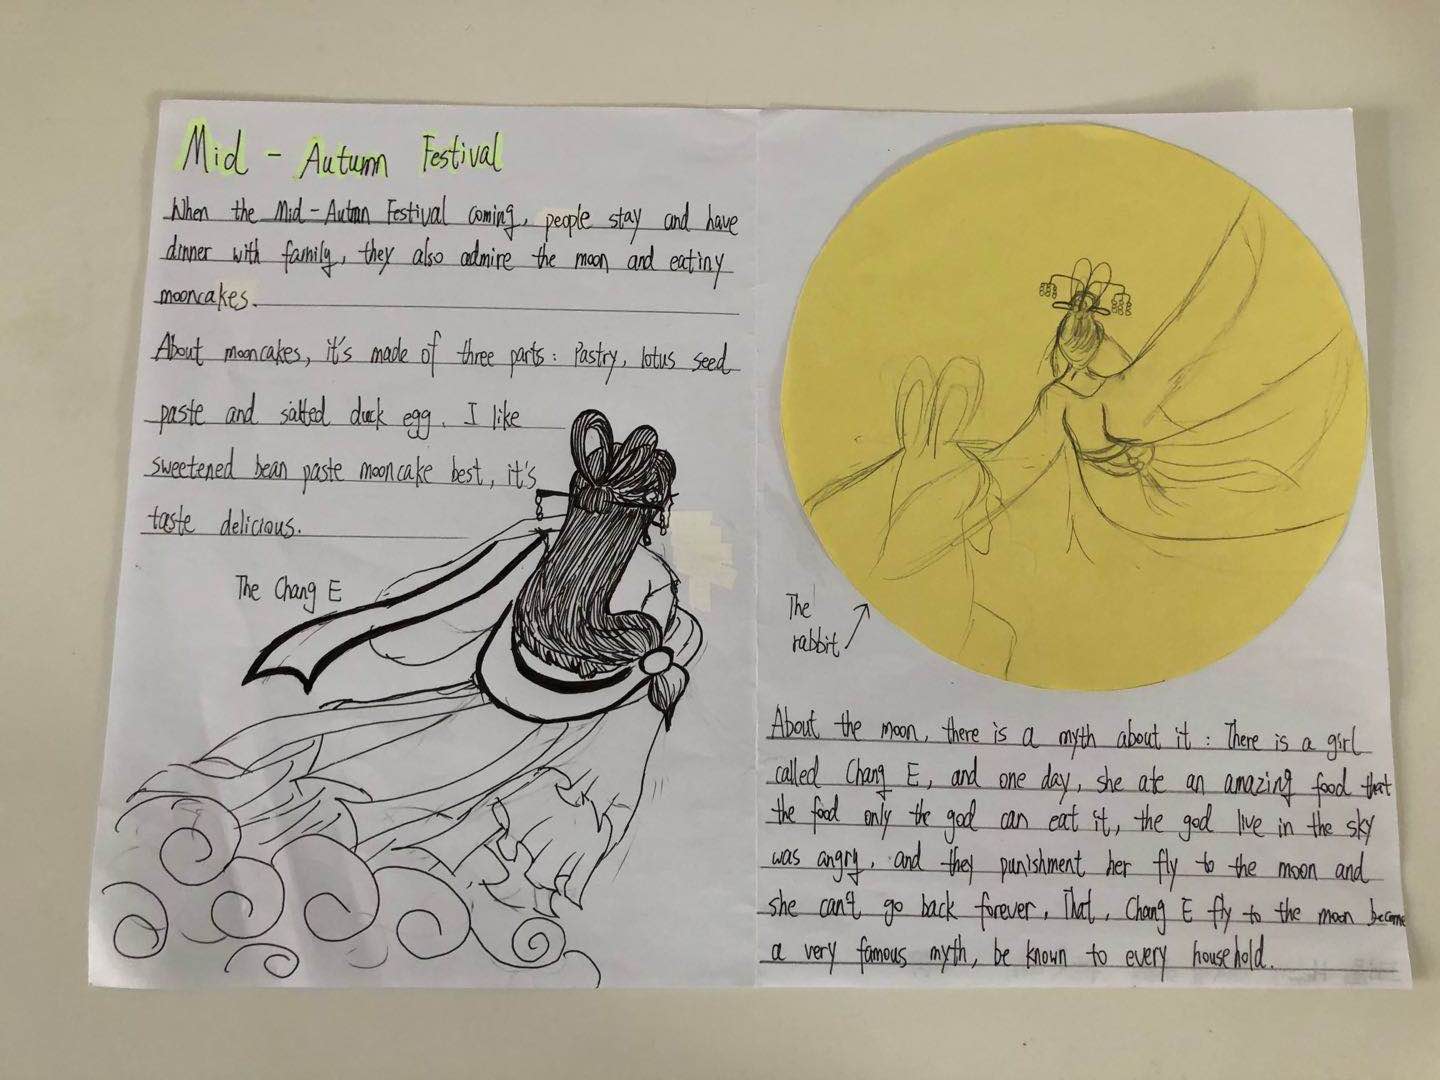 Mid - Autumn Festival
When the Mid-Autmn Festival coming, people stay and have
dinner with family, they also admire the moon and eatiny
mooncakes.
About mooncakes, it's made of three parts: Pastry, lotus seed
paste and salted duck egg. I like
sweetened bean paste mooncake best, it's
taste delicious.
The Chang E
The
rabbit
About the moon, there is a myth about it: There is a girl
called Chang E, and one day, she ate an amazing food that
the food only the god can eat it, the god live in the sky
was angry, and they punishment her fly to the moon and
she can't go back forever, That, Chang E fly to the moon become
a very famous myth, be known to every household.